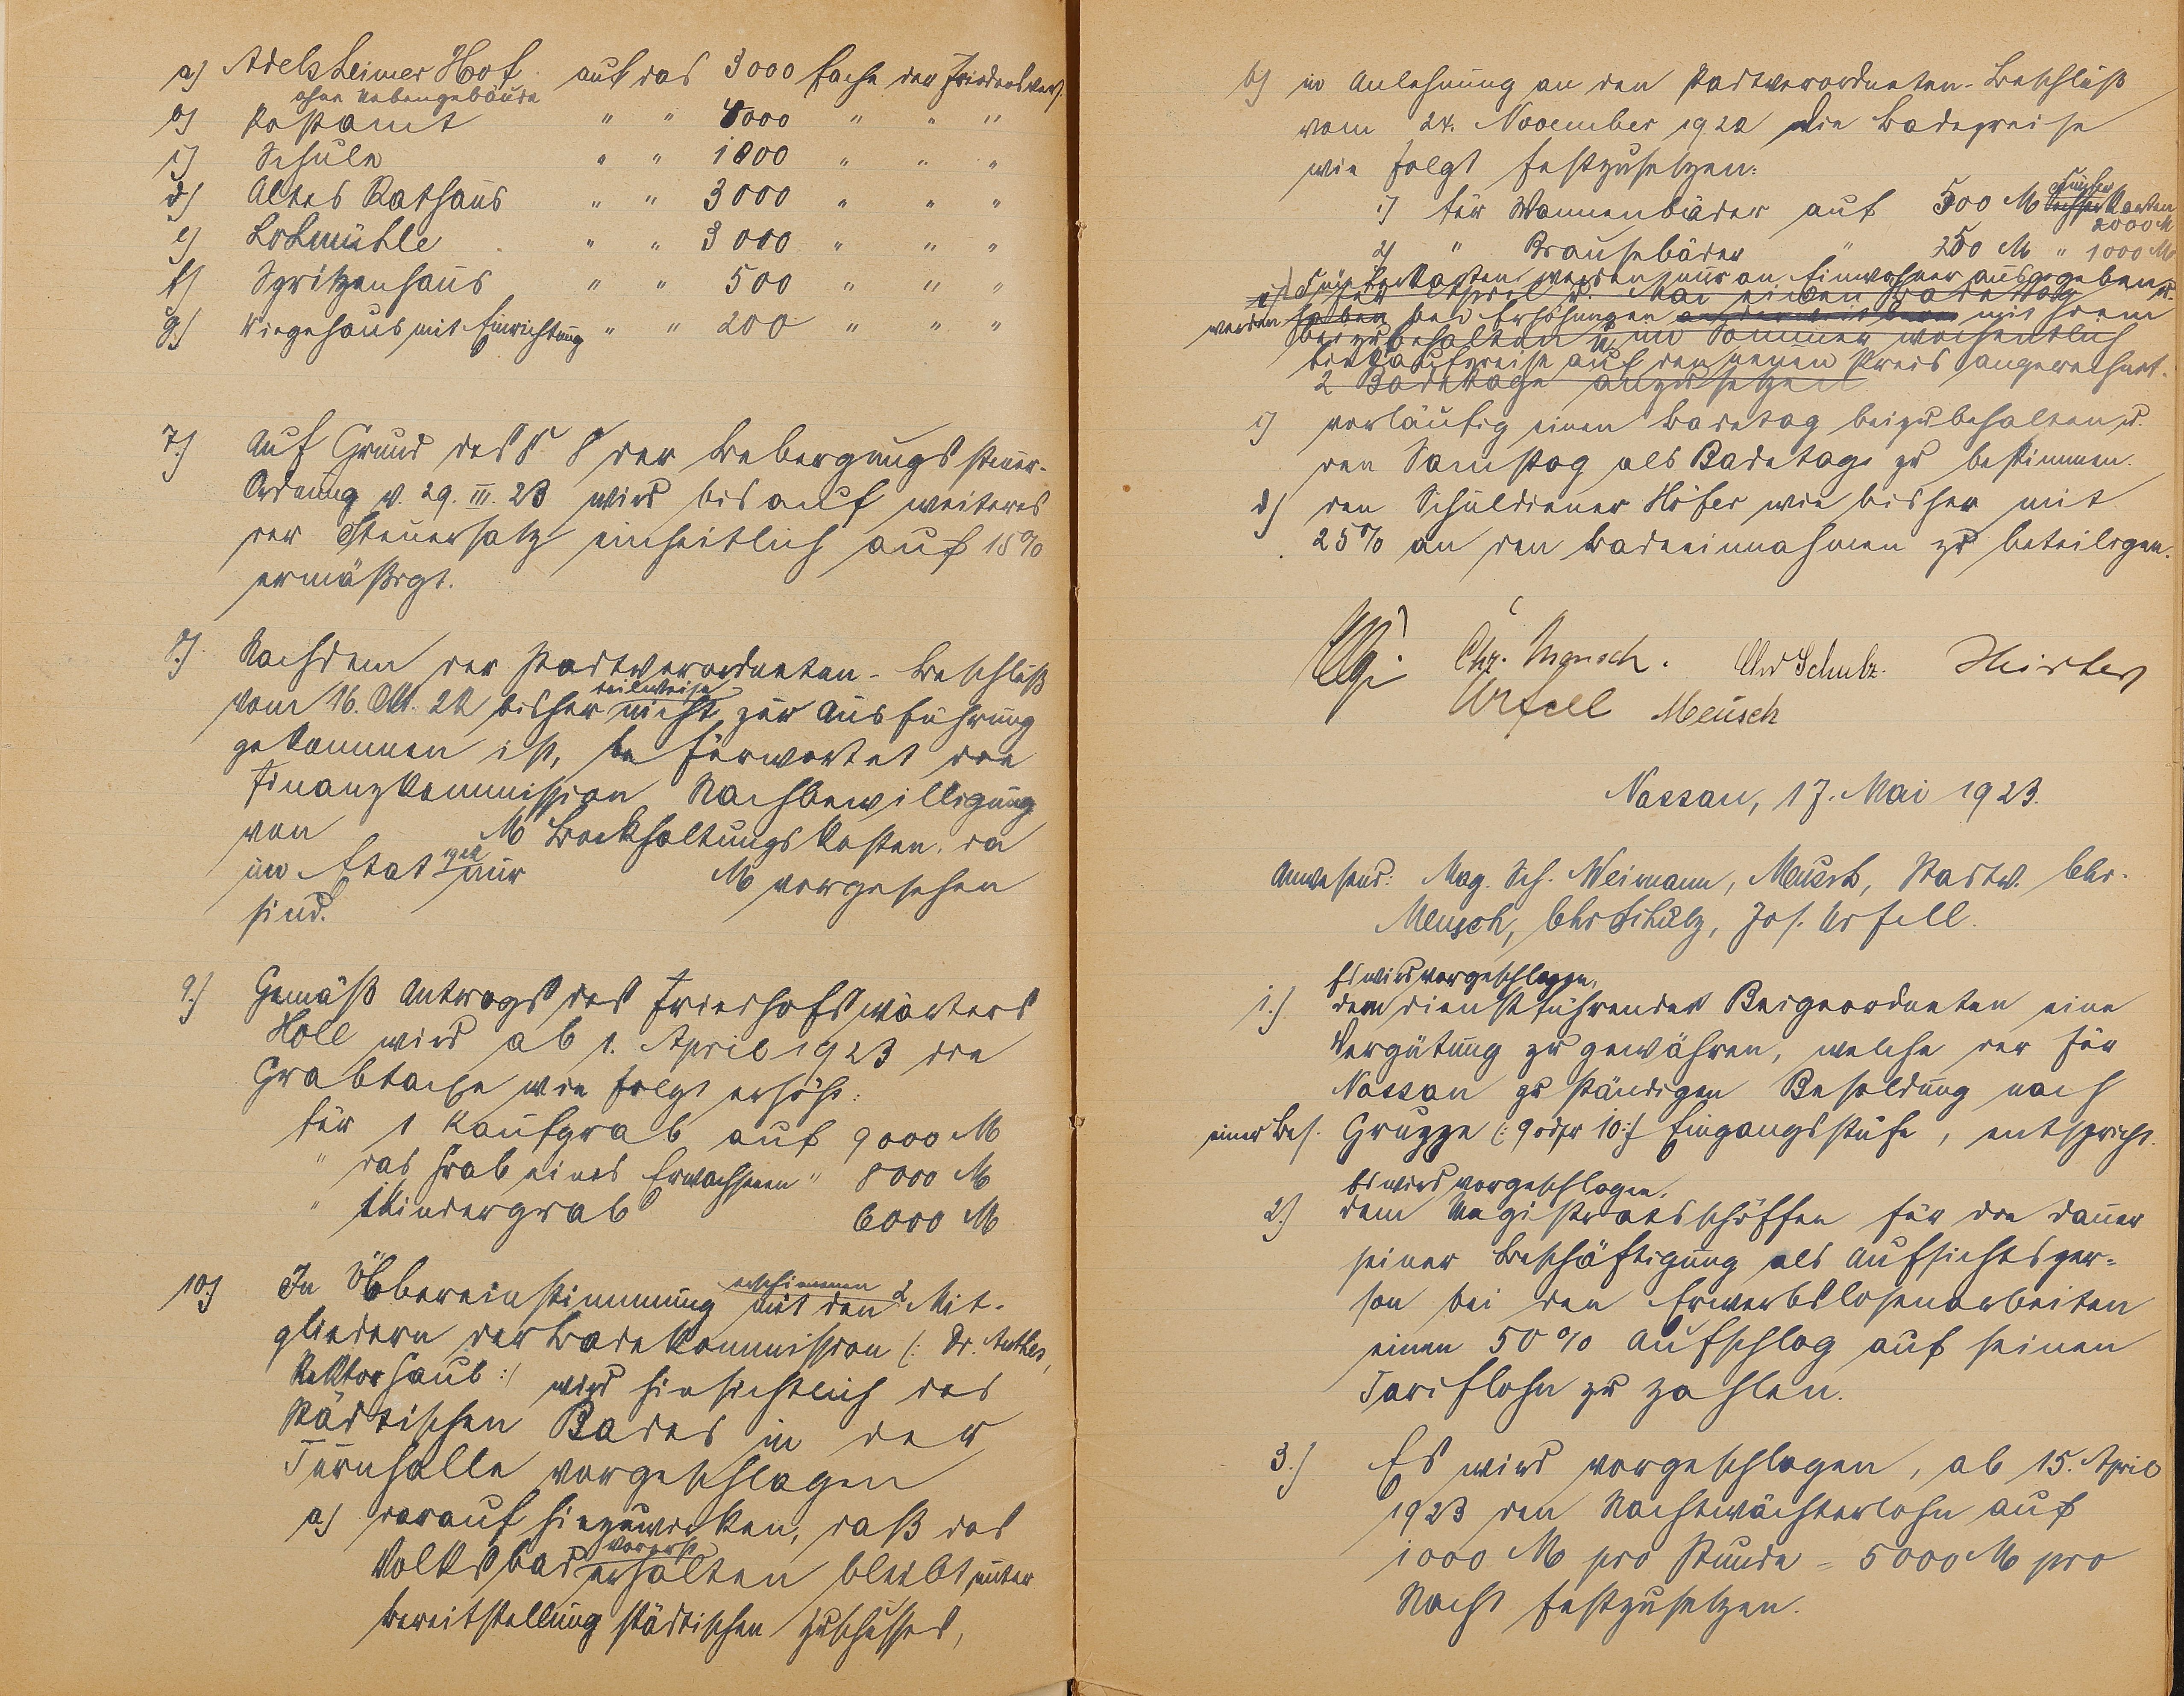 a) Adelsheimer Hof auf das 3000 fache der Friedensvers.
ohne Nebengebäude
b) Postamt " " 4000 " " "
c) Schule " " 1000 " " "
d) Altes Rathaus " " 3000 " " "
e) Lohmühle " " 3000 " " "
f) Spritzenhaus " " 500 " " "
g) Wiegehaus mit Einrichtung " " 200 " " "
7.) Auf Grund des § 8 der Beherbergungssteuer-
Ordnung v. 29. III. 23 wird bis auf weiteres
der Steuersatz einheitlich auf 15%
ermäßigt.
8.) Nachdem der Stadtverordneten-Beschluß
vom 16. Okt. 22 bisher teilweise nicht zur Ausführung
gekommen ist, befürwortet die
Finanzkommission Nachbewilligung
von M Bockhaltungskosten, da
im Etat 1922 nur M vorgesehen
sind.
9.) Gemäß Antrags des Friedhofswärters
Holl wird ab 1. April 1923 die
Grabtaxe wie folgt erhöht:
für 1 Kaufgrab auf 9000 M
" das Grab eines Erwachsenen " 8000 M
" Kindergrab 6000 M
10.) In Übereinstimmung mit den erschienenen 2 Mit-
gliedern der Badekommission (: Dr. Anthes,
Rektor Haub :) wird hinsichtlich des
städtischen Bades in der
Turnhalle vorgeschlagen
a) darauf hinzuwirken, daß das
Volksbad vorerst erhalten bleibt unter
Bereitstellung städtischen Zuschusses,
b) in Anlehnung an den Stadtverordneten-Beschluß
vom 24. November 1922 die Badepreise
wie folgt festzusetzen:
1) für Wannenbäder auf 500 M Fünferkarten
2000 M
2) " Brausebäder " 250 M " 1000 M
Fünferkarten werden nur an Einwohner ausgegeben u.
für April u. Mai einen Badetag
werden bei Erhöhungen mit ihrem
beizubehalten u. im Sommer wöchentlich
Einkaufspreise auf den neuen Preis angerechnet.
2 Badetage anzusetzen
c) vorläufig einen Badetag beizubehalten u.
den Samstag als Badetag zu bestimmen.
d) den Schuldiener Höfer wie bisher mit
25% an den Badeeinnahmen zu beteiligen.
Chr. Mensch. Chr Schulz.
Urfell Meusch
Nassau, 17. Mai 1923.
Anwesend: Mag. Sch. Weimann, Meusch, Stadtv. Chr.
Mensch, Chr Schulz, Jos. Urfell.
Es wird vorgeschlagen,
1.) dem dienstführenden Beigeordneten eine
Vergütung zu gewähren, welche der für
Nassau zuständigen Besoldung nach
einer Bes. Gruppe (: 9 oder 10 :) Eingangsstufe, entspricht.
Es wird vorgeschlagen,
2.) dem Magistratsschöffen für die Dauer
seiner Beschäftigung als Aufsichtsper-
son bei den Erwerbslosenarbeiten
einen 50% Aufschlag auf seinen
Tariflohn zu zahlen.
3.) Es wird vorgeschlagen, ab 15. April
1923 den Nachtwächterlohn auf
1000 M pro Stunde = 5000 M pro
Nacht festzusetzen.